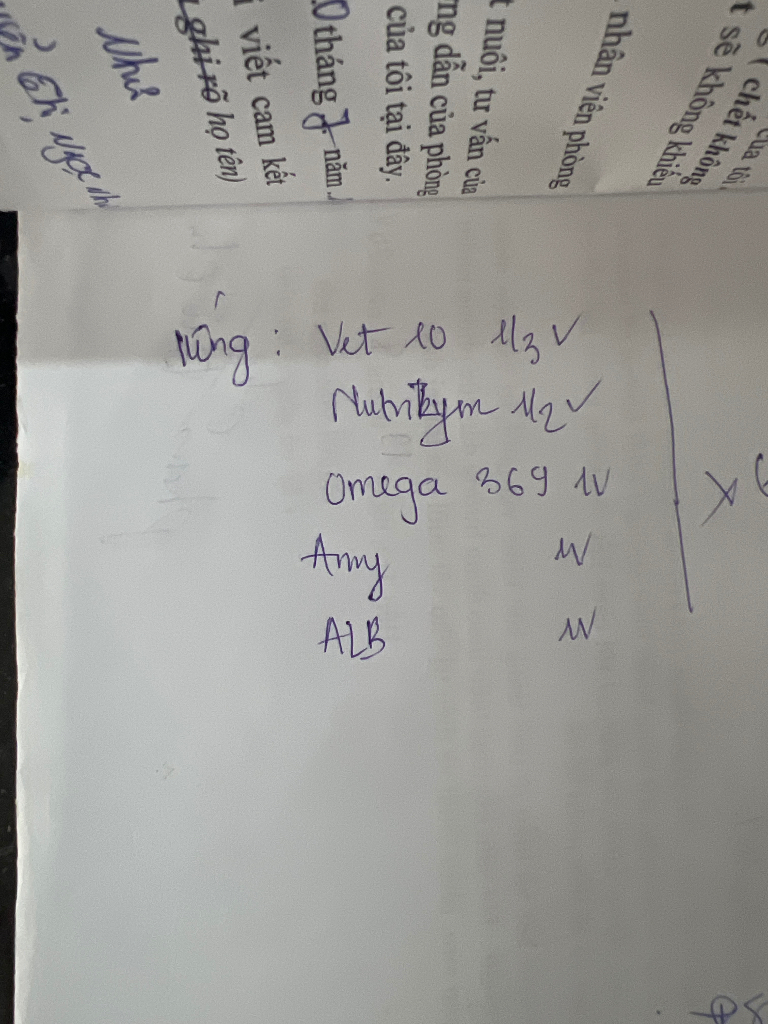 của tôi,
( chết không
t sẽ không khiếu
nhân viên phòng
t nuôi, tư vấn của
ng dẫn của phòng
của tôi tại đây.
0 tháng 7 năm
i viết cam kết
ghi rõ họ tên)
Như
Thị Ngọc Nh
uống : Vet 10 1/3 V
Nutrikym 1/2 V
Omega 369 1V
Amy 1V
ALB 1V
X